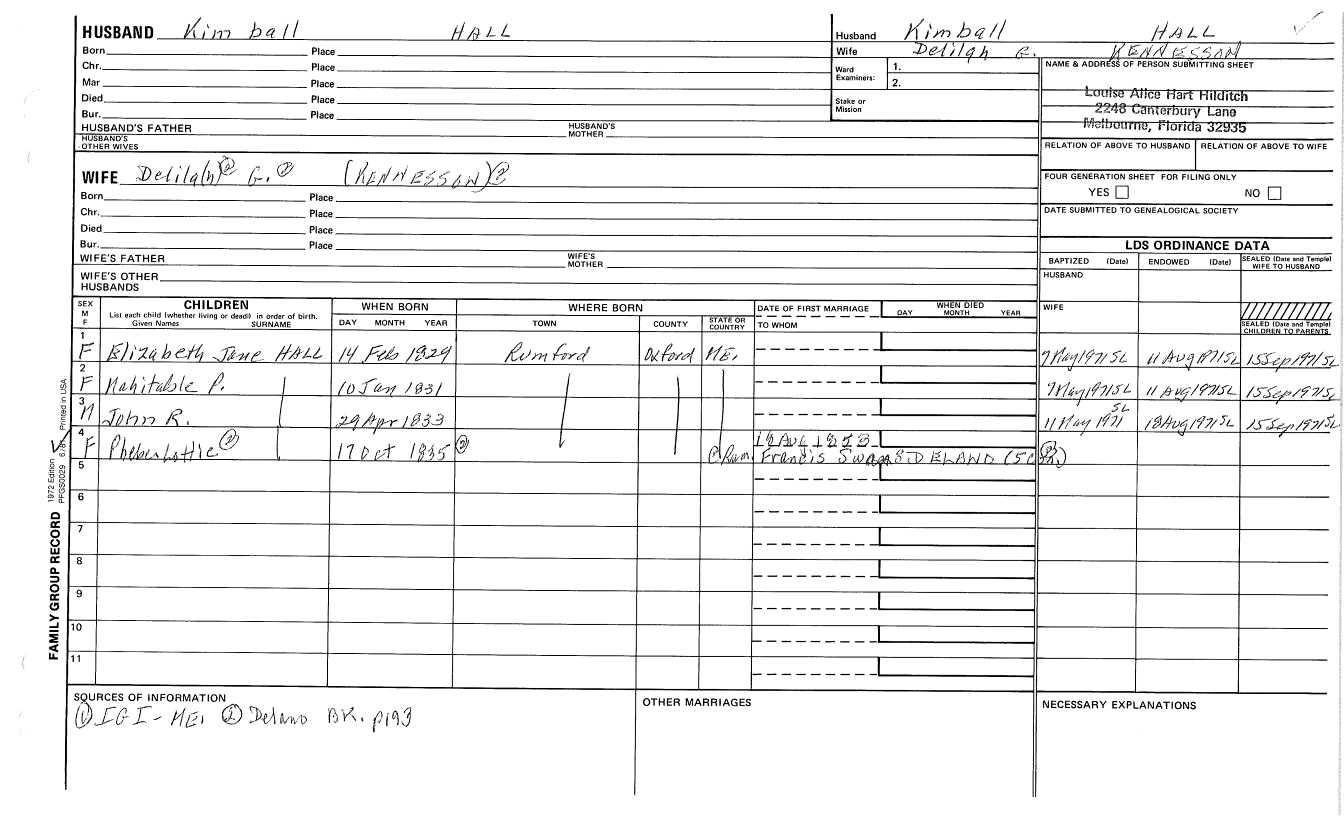 HUSBAND Kimball HALL
Born Place
Chr. Place
Mar Place
Died Place
Bur. Place
HUSBAND'S FATHER HUSBAND'S MOTHER
HUSBAND'S OTHER WIVES
Husband Kimball HALL
Wife Delilah G. KENNESSON
Ward Examiners: 1.
2.
Stake or Mission
NAME & ADDRESS OF PERSON SUBMITTING SHEET
Louise Alice Hart Hilditch
2248 Canterbury Lane
Melbourne, Florida 32935
RELATION OF ABOVE TO HUSBAND RELATION OF ABOVE TO WIFE
FOUR GENERATION SHEET FOR FILING ONLY
YES NO
DATE SUBMITTED TO GENEALOGICAL SOCIETY
WIFE Delila(h) ② G. ② (KENNESSON) ②
Born Place
Chr. Place
Died Place
Bur. Place
WIFE'S FATHER WIFE'S MOTHER
WIFE'S OTHER HUSBANDS
LDS ORDINANCE DATA
BAPTIZED (Date) ENDOWED (Date) SEALED (Date and Temple) WIFE TO HUSBAND
HUSBAND
WIFE
SEALED (Date and Temple) CHILDREN TO PARENTS
SEX M F CHILDREN WHEN BORN WHERE BORN DATE OF FIRST MARRIAGE WHEN DIED
List each child (whether living or dead) in order of birth.
Given Names SURNAME DAY MONTH YEAR TOWN COUNTY STATE OR COUNTRY TO WHOM DAY MONTH YEAR
1 F Elizabeth Jane HALL 14 Feb 1829 Rumford Oxford ME. 7 May 1971 SL 11 Aug 1971 SL 15 Sep 1971 SL
2 F Mahitable P. 10 Jan 1831 7 May 1971 SL 11 Aug 1971 SL 15 Sep 1971 SL
3 M John R. 29 Apr 1833 11 May 1971 SL 18 Aug 1971 SL 15 Sep 1971 SL
4 F 17 Oct 1835 ② 18 AUG 1853
Francis DELANO
5
6
7
8
9
10
11
FAMILY GROUP RECORD 1972 Edition PFGS0029 Printed in USA
SOURCES OF INFORMATION
① IGI - ME. ② Delano BK. p193
OTHER MARRIAGES
NECESSARY EXPLANATIONS